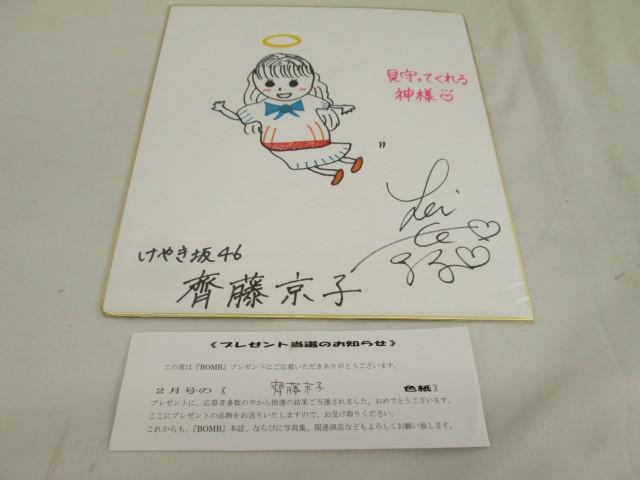 見守ってくれる
神様
けやき坂46
齊藤京子
《プレゼント当選のお知らせ》
この度は『BOMB』プレゼントにご応募いただきありがとうございます。
2月号の《 齊藤京子 色紙》
プレゼントに、応募者多数の中から抽選の結果ご当選されました。おめでとうございます。
ここにプレゼントの品物をお送りいたしますので、お受け取りください。
これからも、『BOMB』本誌、ならびに写真集、関連商品などもよろしくお願い致します。